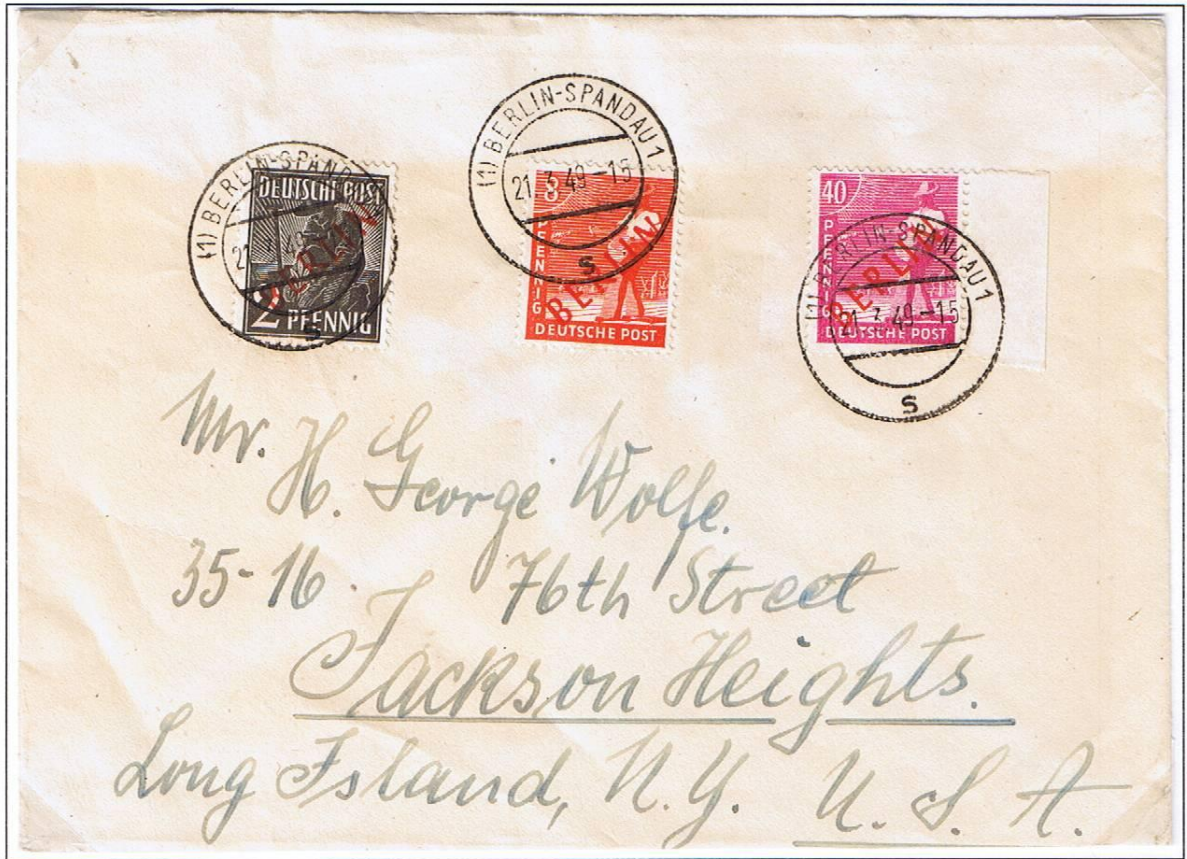 (1) BERLIN-SPANDAU 1
21.3.49-15
s
DEUTSCHE POST
BERLIN
2 PFENNIG
(1) BERLIN-SPANDAU 1
21.3.49-15
s
8
PFENNIG
BERLIN
DEUTSCHE POST
40
PFENNIG
BERLIN
DEUTSCHE POST
(1) BERLIN-SPANDAU 1
21.3.49-15
s
Mr. H. George Wolfe.
35-16 76th Street
Jackson Heights.
Long Island, N.Y. U.S.A.